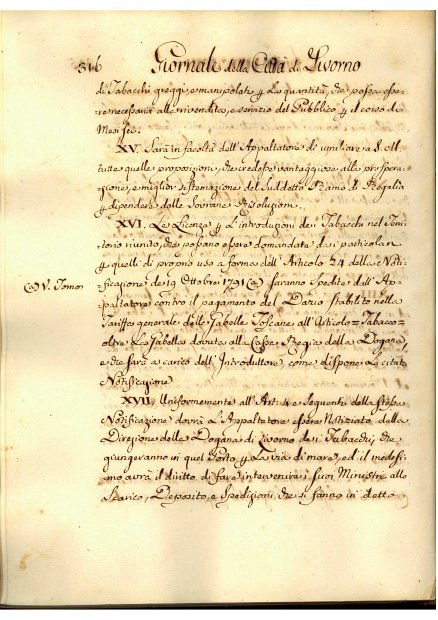 316 Giornale della Città di Livorno
di Tabacchi greggi, e manipolati p. la quantità, che possa esse-
re necessaria alla rivendita, e servizio del Pubblico p. il corso di
Mesi sei.
XV. Sarà in facoltà dell'Appaltatore di umiliare a S. M.
tutte quelle proposizioni, che credesse vantaggiose alla prospera-
zione, e miglior sistemazione del suddetto Ramo di Regalia
p. dipendere dalle Sovrane Risoluzioni.
XVI. Le Licenze p. l'introduzioni dei Tabacchi nel Terri-
torio riunito, che possano essere domandate dai particolari
p. quelli di proprio uso a forma dell'Articolo 24 della Noti-
(a) V. Tomo
ficazione de 19 Ottobre 1791 (a) saranno spedite dall'Ap-
paltatore contro il pagamento del Dazio stabilito nella
Tariffa generale delle Gabelle Toscane all'Articolo = Tabaco =
oltre la Gabella dovuta alla Cassa Regia della Dogana,
che sarà a carico dell'Introduttore, come dispone la citata
Notificazione
XVII. Uniformemente all'Art: 4 e seguenti della stessa
Notificazione dovrà l'Appaltatore essere Notiziato dalla
Direzione della Dogana di Livorno dei Tabacchi, che
giungeranno in quel Porto p. la via di mare, ed il medesi-
mo avrà il diritto di fare intervenire i suoi Ministri allo
Scarico, Deposito, e Spedizioni che si fanno in detto